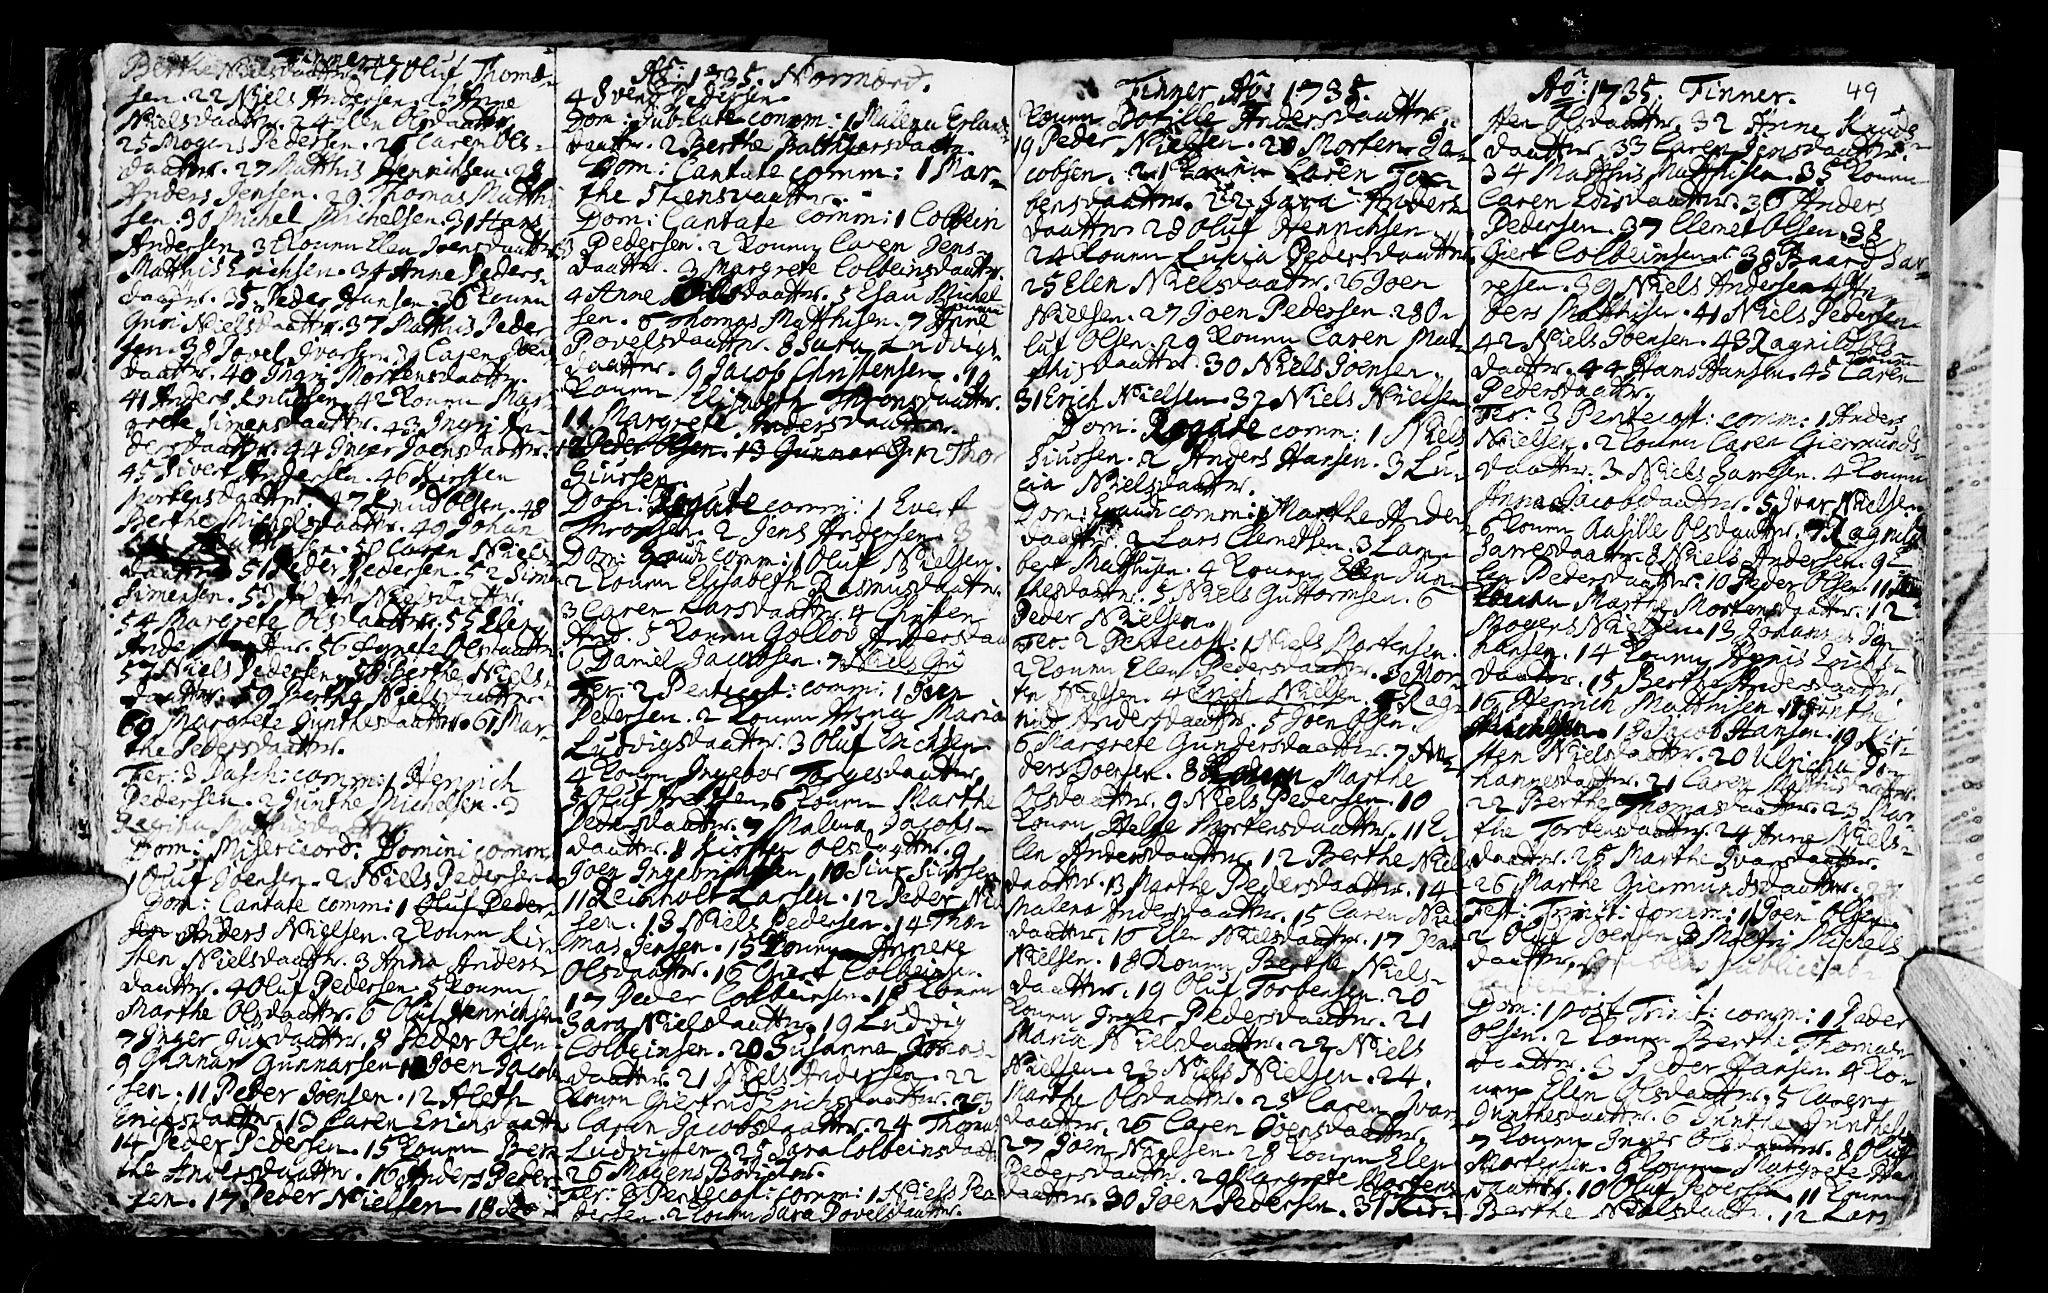 Finner
Berthe Nielsdaatter. 21 Oluf Thomæ-
sen. 22 Niels Andersen. 23 Anne
Nielsdaattr. 24 Elen Olsdaattr.
25 Mogens Pedersen. 26 Caren Ols-
daattr. 27 Matthis Henrichsen. 28
Anders Jensen. 29 Thomas Matthi-
sen. 30 Michel Michelsen. 31 Hans
Andersen. 32 Konen Elen Joensdaattr.
33 Matthis Erichsen. 34 Anne Peders-
daattr. 35 Peder Hansen. 36 Konen
Guri Nielsdaattr. 37 Matthis Peder-
sen. 38 Povel Ivarsen. 39 Caren
daattr. 40 Ingri Mortensdaattr.
41 Anders Knudsen. 42 Konen Mar-
grete Simensdaattr. 43 Ingri
dersdaattr. 44 Inger Joensdaattr.
45 Sivert Andersen. 46 Kirsten
Mortensdaattr. 47 Knud Olsen. 48
Berthe Michelsdaattr. 49 Johan
50 Caren Niels-
daattr. 51 Peder Pedersen. 52 Simen
Simensen. 53 Nielsdaattr.
54 Margrete Olsdaattr. 55 Elen
Andersdaattr. 56 Agnete Olsdaattr.
57 Niels Pedersen. 58 Berthe Niels-
daattr. 59 Marthe Nielsdaattr.
60 Margrete Gunthesdaattr. 61 Mar-
the Pedersdaattr.
Fer: 3 Pasch: comm: 1 Henrich
Pedersen. 2 Gunthe Michelsen. 3
Dom: Misericord: Domini comm:
1 Oluf Joensen. 2 Niels Pedersen.
Dom: Cantate comm: 1 Oluf Peder-
sen Anders Nielsen. 2 Konen Kir-
sten Nielsdaattr. 3 Anna Anders-
daattr. 4 Oluf Pedersen. 5 Konen
Marthe Olsdaattr. 6 Oluf Henrichsen
7 Inger daattr. 8 Peder Olsen.
9 Gunnar Gunnarsen 10 Joen Jacob-
sen. 11 Peder Joensen. 12 Aleth
Erichsdaattr. 13 Caren Erichsdaattr.
14 Peder Pedersen. 15 Konen Ber-
the Andersdaattr. 16 Anders Peder-
sen. 17 Peder Nielsen. 18 Ko-
Ao: 1735. Normænd.
4 Svend Pedersen.
Dom: Jubilate comm: 1 Malena Erlands-
daattr. 2 Berthe Balthsarsdaattr.
Dom: Cantate comm: 1 Mar-
the Stensdaattr.
Dom: Cantate comm: 1 Colbein
Pedersen. 2 Konen Caren Jens-
daattr. 3 Margrete Colbeinsdaattr.
4 Anne Olsdaattr. 5 Esau Michel-
sen. 6 Thomas Matthisen. 7 Konen Anne
Povelsdaattr. 8 Sara Ludvigs-
daattr. 9 Jacob Christensen. 10
Konen Elisabeth Thronsdaattr.
11 Margrete Andersdaattr.
12 Peder Olsen. 13 Gunnar 12 Thor
Siursen.
Dom: Rogate comm: 1 Evert
Thronsen. 2 Jens Andersen. 3
Dom: Exaudi comm: 1 Oluf Nielsen.
2 Konen Elisabeth Rasmusdaattr.
3 Caren Larsdaattr. 4 Christen
And. 5 Konen Gollov Andersdaattr.
6 Daniel Jacobsen. 7 Niels
Fer: 2 Pentecost: comm: 1 Joen
Pedersen. 2 Konen Anna Maria
Ludvigsdaattr. 3 Oluf Erichsen
4 Konen Ingebor Torgesdaattr.
5 Oluf 6 Konen Marthe
Pedersdaattr. 7 Malena Jacobs-
daattr. 8 Kirsten Olsdaattr. 9
Joen Ingebrigtsen 10 Siur Siursen
11 Reinholt Larsen. 12 Peder Niel-
sen. 13 Niels Pedersen. 14 Tho-
mas Jensen. 15 Konen Anneke
Olsdaattr. 16 Giert Colbeinsen.
17 Peder Colbeinsen. 18 Konen
Sara Nielsdaattr. 19 Ludvig
Colbeinsen. 20 Susanna Joens-
daattr. 21 Niels Andersen. 22
Konen Giertrud Erichsdaattr. 23
Caren Jacobsdaattr. 24 Thomas
Ludvigsen. 25 Sara Colbeinsdaattr.
26 Mogens
Fer: 3 Pentecost: comm: 1 Niels Pe-
dersen. 2 Konen Sara Povelsdaattr.
Finner Ao: 1735.
Konen Botille Andersdaattr.
19 Peder Nielsen. 20 Morten Ja-
cobsen. 21 Konen Caren Tor-
bensdaattr. 22 Sara Anders-
daattr. 23 Oluf Henrichsen
24 Konen Lucia Pedersdaattr.
25 Elen Nielsdaattr. 26 Joen
Nielsen. 27 Joen Pedersen. 28 O-
luf Olsen. 29 Konen Caren Mat-
thisdaattr. 30 Niels Joensen.
31 Erich Nielsen. 32 Niels Nielsen
Dom: Rogate comm: 1 Niels
Siursen. 2 Anders Hansen. 3 Lu-
cia Nielsdaattr.
Dom: Exaudi comm: 1 Marthe Anders-
daattr. 2 Lars Clemetsen. 3 Lam-
bert Matthisen. 4 Konen Elen Gun-
thesdaattr. 5 Niels Guttormsen. 6
Peder Nielsen.
Fer: 2 Pentecost: 1 Niels Mortensen.
2 Konen Elen Pedersdaattr. 3 Mor-
ten Nielsen. 4 Erich Nielsen. 4 Rag-
nild Andersdaattr. 5 Joen Olsen.
6 Margrete Gundersdaattr. 7 An-
ders Joensen. 8 Konen Marthe
Olsdaattr. 9 Niels Pedersen. 10
Konen Helge Mortensdaattr. 11 E-
len Andersdaattr. 12 Berthe Niels-
daattr. 13 Marthe Pedersdaattr. 14
Malena Andersdaattr. 15 Caren Niels-
daattr. 16 Elen Nielsdaattr. 17 Jens
Nielsen. 18 Konen Berthe Niels-
daattr. 19 Oluf Torbensen. 20
Konen Inger Pedersdaattr. 21
Maria Nielsdaattr. 22 Niels
Nielsen. 23 Niels Nielsen. 24.
Marthe Olsdaattr. 25 Caren Ivars-
daattr. 26 Caren Joensdaattr.
27 Joen Nielsen. 28 Konen Elen
Pedersdaattr. 29 Margrete Mortens-
daattr. 30 Joen Pedersen. 31 Kir-
Ao: 1735. Finner. 49
sten Olsdaattr. 32 Anne Knuds-
daattr. 33 Caren Jensdaattr.
34 Matthis Matthisen. 35 Konen
Caren Larsdaattr. 36 Anders
Pedersen. 37 Clemet Olsen. 38
Giert Colbeinsen. 38 Baard Lar-
resen. 39 Niels Andersen. 40 An-
ders Matthisen. 41 Niels Pedersen.
42 Niels Joensen. 43 Ragnild
daattr. 44 Hans Hansen. 45 Konen Caren
Pedersdaattr.
Fer: 3 Pentecost: comm: 1 Anders
Nielsen. 2 Konen Caren Giermunds-
daattr. 3 Niels 4 Konen
Anna Jacobsdaattr. 5 Ivar Nielsen.
6 Konen Aasille Olsdaattr. 7 Ragnild
daattr. 8 Niels Andersen. 9 E-
len Pedersdaattr. 10 Peder Olsen. 11
Konen Marthe Mortensdaattr. 12
Mogens Nielsen. 13 Johannes Jo-
hansen. 14 Konen Annis Erichs-
daattr. 15 Berthe Andersdaattr.
16 Henrich Matthisen. 17
18 Jacob Hansen. 19 Kir-
sten Nielsdaattr. 20 Ulricha Jo-
hannesdaattr. 21 Caren Matthisdaattr.
22 Berthe Thomasdaattr. 23 Mar-
the Torbensdaattr. 24 Anne Niels-
daattr. 25 Marthe Ivarsdaattr.
26 Marthe Giermundsdaattr.
Fest: Trinit: comm: 1 Joen Olsen
2 Oluf Joensen 3 Michels-
daattr.
Dom: 1 post Trinit: comm: 1 Peder
Olsen. 2 Konen Berthe Thomas-
daattr. 3 Peder Hansen. 4 Ko-
nen Elen Olsdaattr. 5 Caren
Gunthesdaattr. 6 Gunthe Gunthesen
7 Konen Inger Olsdaattr. 8 Oluf
Mortensen. 9 Konen Margrete
daattr. 10 Oluf Pedersen. 11 Konen
Berthe Nielsdaattr. 12 Lars